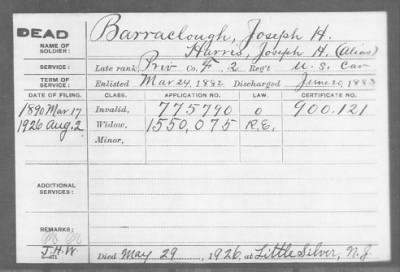 DEAD
NAME OF SOLDIER: Barraclough, Joseph H.
Harris, Joseph H. (Alias)
SERVICE: Late rank, Priv Co. F, 2 Reg't U.S. Cav
TERM OF SERVICE: Enlisted Mar 24, 1882 Discharged June 20, 1883
DATE OF FILING. CLASS. APPLICATION NO. LAW. CERTIFICATE NO.
1890 Mar 17 Invalid, 775790 O 900.121
1926 Aug. 2 Widow, 1550,075 R.E.
Minor,
ADDITIONAL SERVICES:
REMARKS:
J.H.W
Died May 29, 1926, at Little Silver, N.J